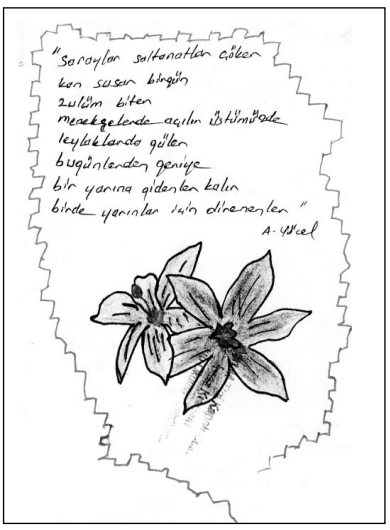 "Saraylar saltanatlar çöker
kan susar birgün
zulüm biter
menekşelerde açılır üstümüzde
leylaklarda güler
bugünlerden geriye
bir yarına gidenler kalır
birde yarınlar için direnenler"
A. Yücel